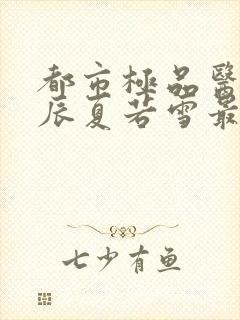 都市極品醫
辰夏若雪最
七少有鱼